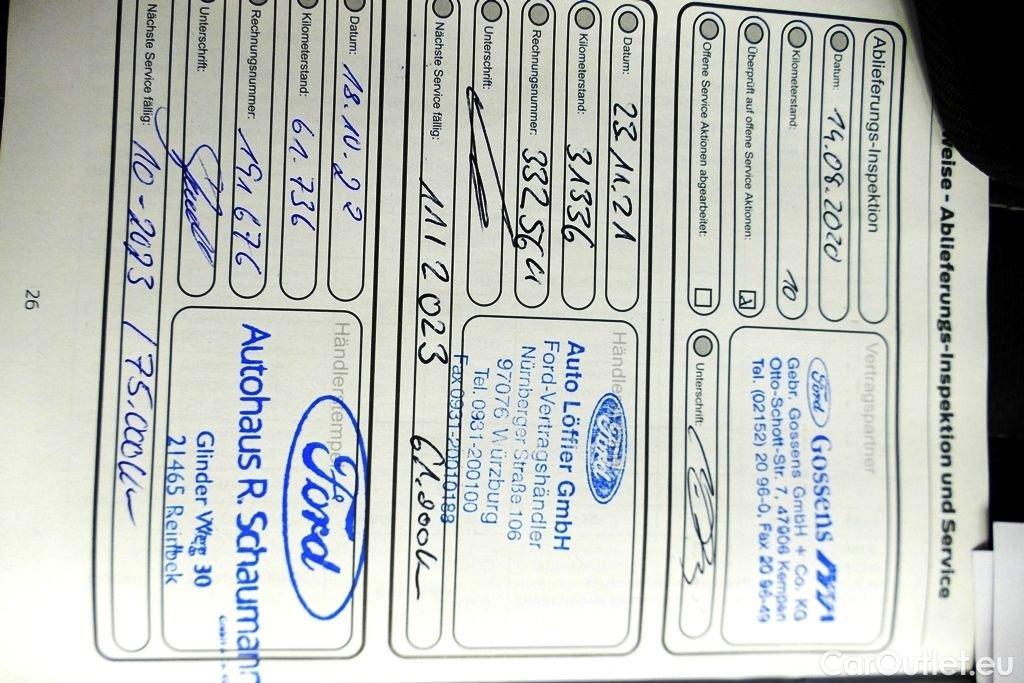 weise - Ablieferungs-Inspektion und Service
Ablieferungs-Inspektion
Datum: 14.08.2020
Kilometerstand: 10
Überprüft auf offene Service Aktionen:
Offene Service Aktionen abgearbeitet:
Vertragspartner
Ford GOSSENS
Gebr. Gossens GmbH + Co. KG
Otto-Schott-Str. 7, 47906 Kempen
Tel. (02152) 20 96-0, Fax 20 96-49
Unterschrift:
Datum: 23.11.21
Kilometerstand: 31336
Rechnungsnummer: 332564
Unterschrift:
Nächste Service fällig: 11/2023 61.000km
Händle
Ford
Auto Löffler GmbH
Ford-Vertragshändler
Nürnberger Straße 106
97076 Würzburg
Tel. 0931-200100
Fax 0931-20010188
Datum: 18.10.22
Kilometerstand: 61.736
Rechnungsnummer: 191676
Unterschrift:
Nächste Service fällig: 10-2023 / 75.000km
Händlerstempe
Ford
Autohaus R. Schaumann
Glinder Weg 30
21465 Reinbek
26
CarOutlet.eu